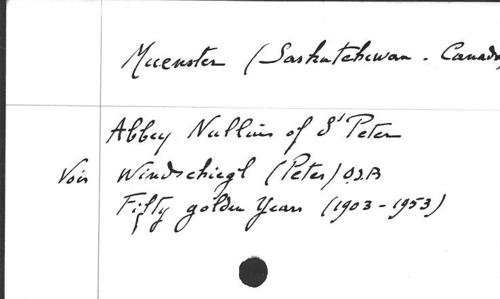 Muenster (Saskatchewan - Canada)
Abbey Nullius of St Peter
Voir Windschiegl (Peter) O.S.B
Fifty golden Years (1903-1953)